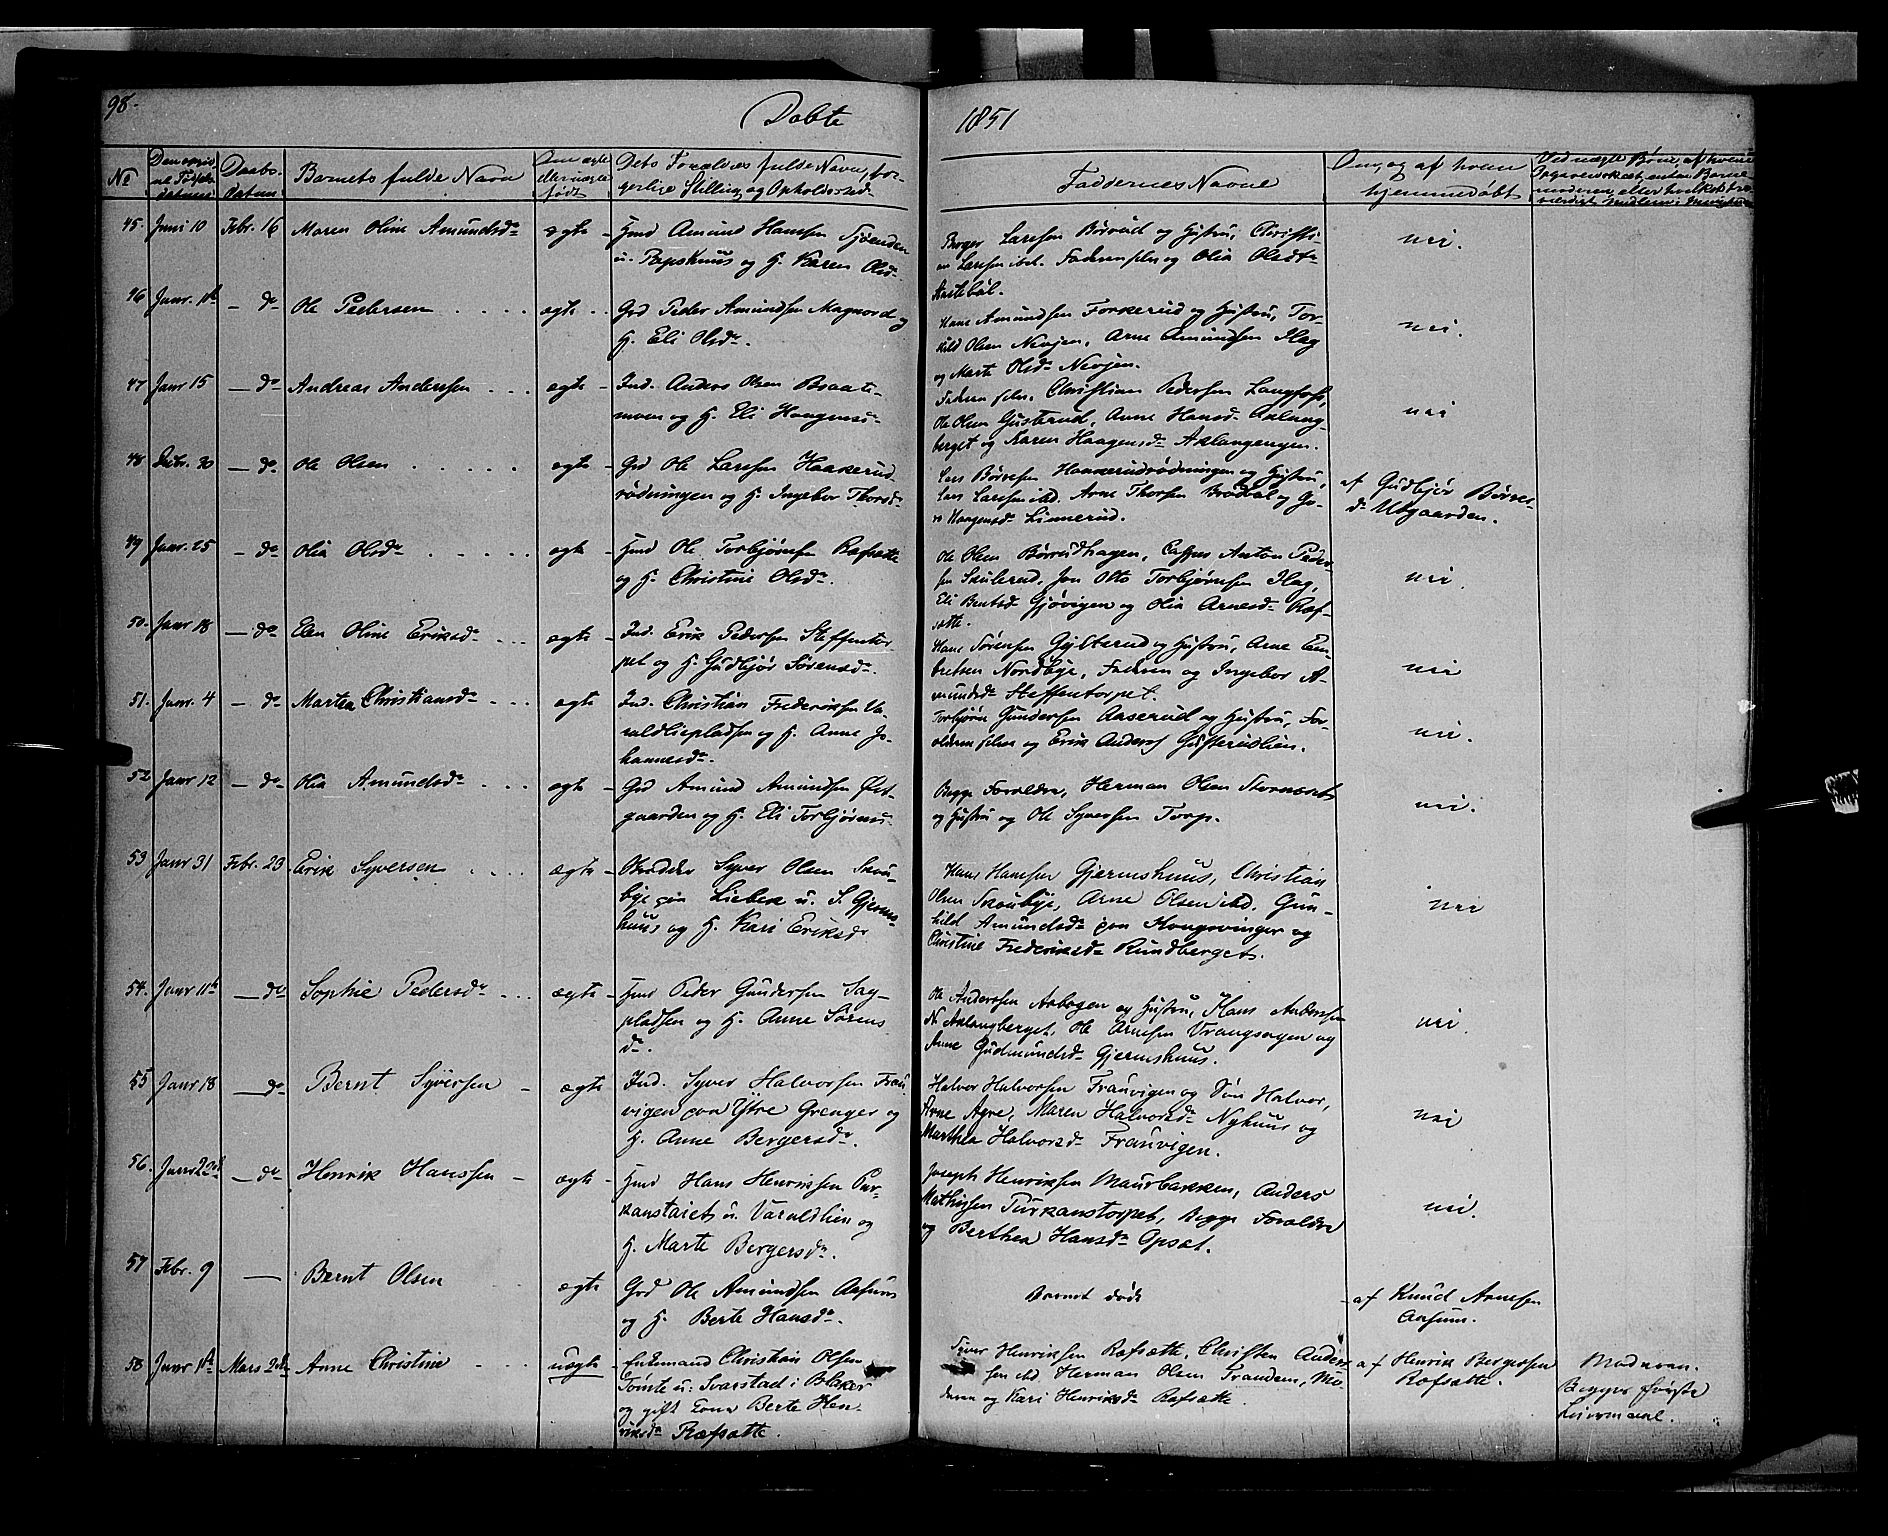 98.
Døbte 1851
No
Daabs-
Datum
Barnets fulde Navn
født
Dets Forældres fulde Navn, bor-
gerlige Stilling og Opholdssted
Faddernes Navne
Om, og af hvem
hjemmedøbt
45. Juni 10 Febr. 16 Maren Oline Amundsdr ægte Hmd Amund Hansen
u. Papshuus og H. Karen Olsdr
Berger Larssen Børrud og Hustru, Christi-
an Larssen ibd. Faderen selv og Olia Olsdr
nei.
46 Janr. 1ste do Ole Pedersen ægte Grd Peder Amundsen Magnord og
H. Eli Olsdr.
Hans Amundsen Forkerud og Hustru, Tor-
kild Olsen Nevjen, Arne Amundsen Ilag
og Marte Olsdr Nevjen.
nei.
47 Janr 15 do Andreas Anderssen ægte Ind. Anders Olsen Braate-
moen og H. Eli Haagensdr
Faderen selv, Christian Pedersen Langfoss,
Ole Olsen Gusterud, Anne Hansdr Aklang-
berget og Karen Haagensdr Aklangengen.
nei
48 30 do Ole Olsen ægte Grd Ole Larssen Haakerud-
rødningen og H. Ingebor Thorsdr
Lars Børresen Haakerudrødningen og Hustru,
Lars Larssen ibd. Arne Thorsen Brødbøl og Go-
ro Haagensdr Linnerud.
af Gudbjør Børres-
dr Utgaarden.
49 Janr. 25 do Olia Olsdr ægte Hmd Ole Torbjørnsen Rafsætte
og H. Christine Olsdr.
Ole Olsen Børrudhagen, Casper Anton Peder-
sen Skulerud, Jon Otto Torbjørnsen Ilag,
Eli Bentsdr Gjøvigen og Olia Arnesdr Raf-
sætte.
nei
50. Janr 18 do Elen Oline Eriksdr ægte Ind. Erik Pedersen Steffentor-
pet og H. Gudbjør Sørensdr
Hans Sørensen Gylterud og Hustru, Arne Em-
bretsen Nordbye, Faderen og Ingebor A-
mundsdr Steffentorpet.
nei
51. Janr. 4 do Martea Christiansdr ægte Ind. Christian Frederiksen Va-
raldliepladsen og H. Anne Jo-
hannesdr.
Torbjørn Gundersen Aaserud og Hustru, For-
ældrene selv og Erik Anders Gusterudlien.
nei.
52 Janr 12 do Olia Amundsdr ægte Grd Amund Amundsen Øst-
gaarden og H. Eli Torbjørnsdr
Begge Forældre, Herman Olsen Stornæset
og Hustru og Ole Syversen Torp.
nei.
53 Janr 31 Febr. 23 Erik Syversen ægte Syver Olsen Skou-
bye paa Liebek u. S. Gjerms-
huus og H. Kari Eriksdr
Hans Hansen Gjermshuus, Christian
Olsen Skoubye, Arne Olsen ibd. Gun-
hild Amundsdr paa Kongsvinger og
Christine Frederiksdr Rundberget.
nei
54. Janr 11te do Sophie Pedersdr ægte Hmd Peder Gundersen Sag-
pladsen og H. Anne Sørens-
dr.
Ole Anderssen Aabogen og Hustru, Hans Anderssen
N. Aklangberget, Ole Arnesen Vrangsagen og
Anne Gudmundsdr Gjermshuus.
nei.
55 Janr 18 do Bernt Syversen ægte Ind. Syver Halvorsen Frau-
vigen paa Ystre Grenger og
H. Anne Bergersdr.
Halvor Halvorsen Frauvigen og Søn Halvor,
Arne Agre, Maren Halvorsdr Nyhuus og
Marthea Halvorsdr Frauvigen.
nei
56. Janr 22de do Henrik Hanssen ægte Hmd Hans Henriksen Pur-
kanstaiet u. Varaldlien og
H. Marte Bergersdr.
Joseph Henriksen Maurbakken, Anders
Mathissen Purkanstorpet, Begge Forældre
og Berthea Hansdr Opsæt.
nei.
57 Febr. 9 Bernt Olsen ægte Grd Ole Amundsen Aasum
og H. Berte Hansdr.
Barnet døde
af Knud Arnesen
Aasum.
58 Janr 1ste Mars 2den Anne Christine uægte Enkemand Christian Olsen
Tomte u. Svarstad i Blaker
og gift Kone Berte Hen-
riksdr Rafsætte.
Syver Henriksen Rafsætte, Christen Anders-
sen ibd. Herman Olsen Trandem, Mo-
deren og Kari Henriksdr Rafsætte.
af Henrik Bergersen
Rafsætte.
Moderen.
Begges første
Leiermaal.